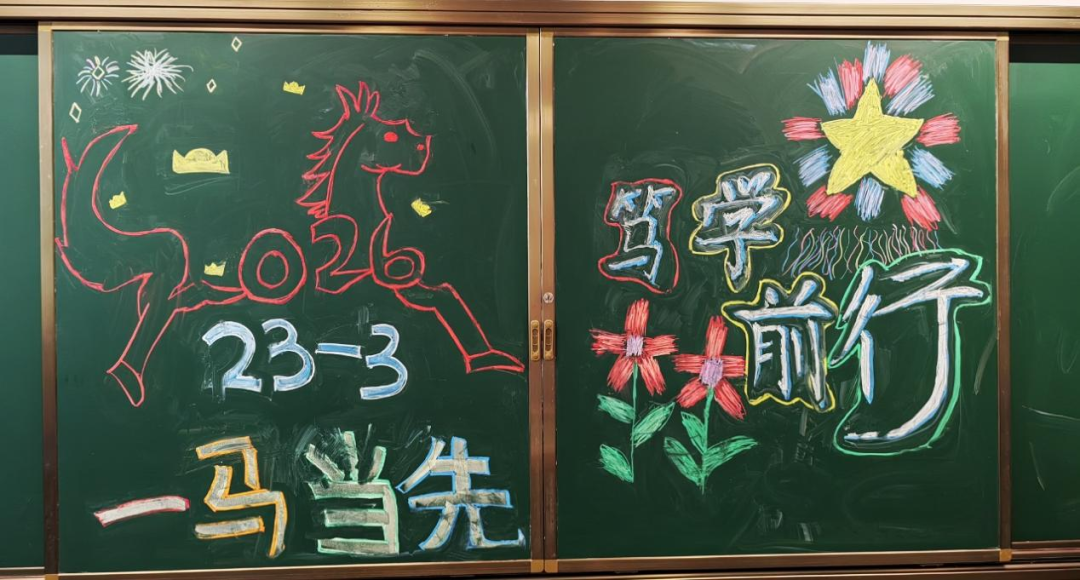 2026
23-3
一马当先
笃学
前行